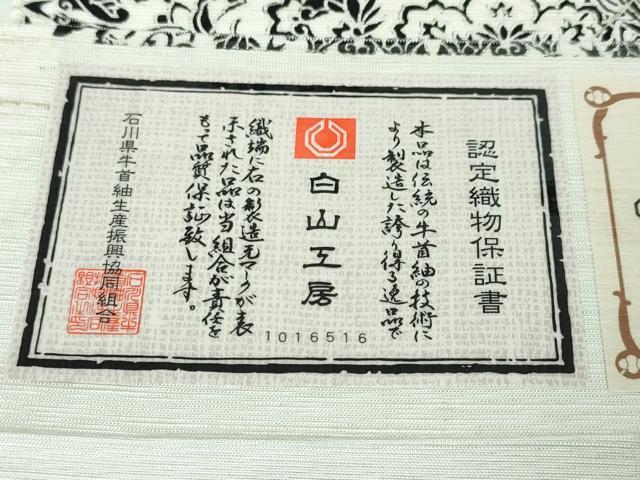 認定織物保証書
本品は伝統の牛首紬の技術に
より製造した誇り得る逸品で
白山工房
1016516
織端に右の製造元マークが表
示された品は当組合が責任を
もって品質保証致します。
石川県牛首紬生産振興協同組合